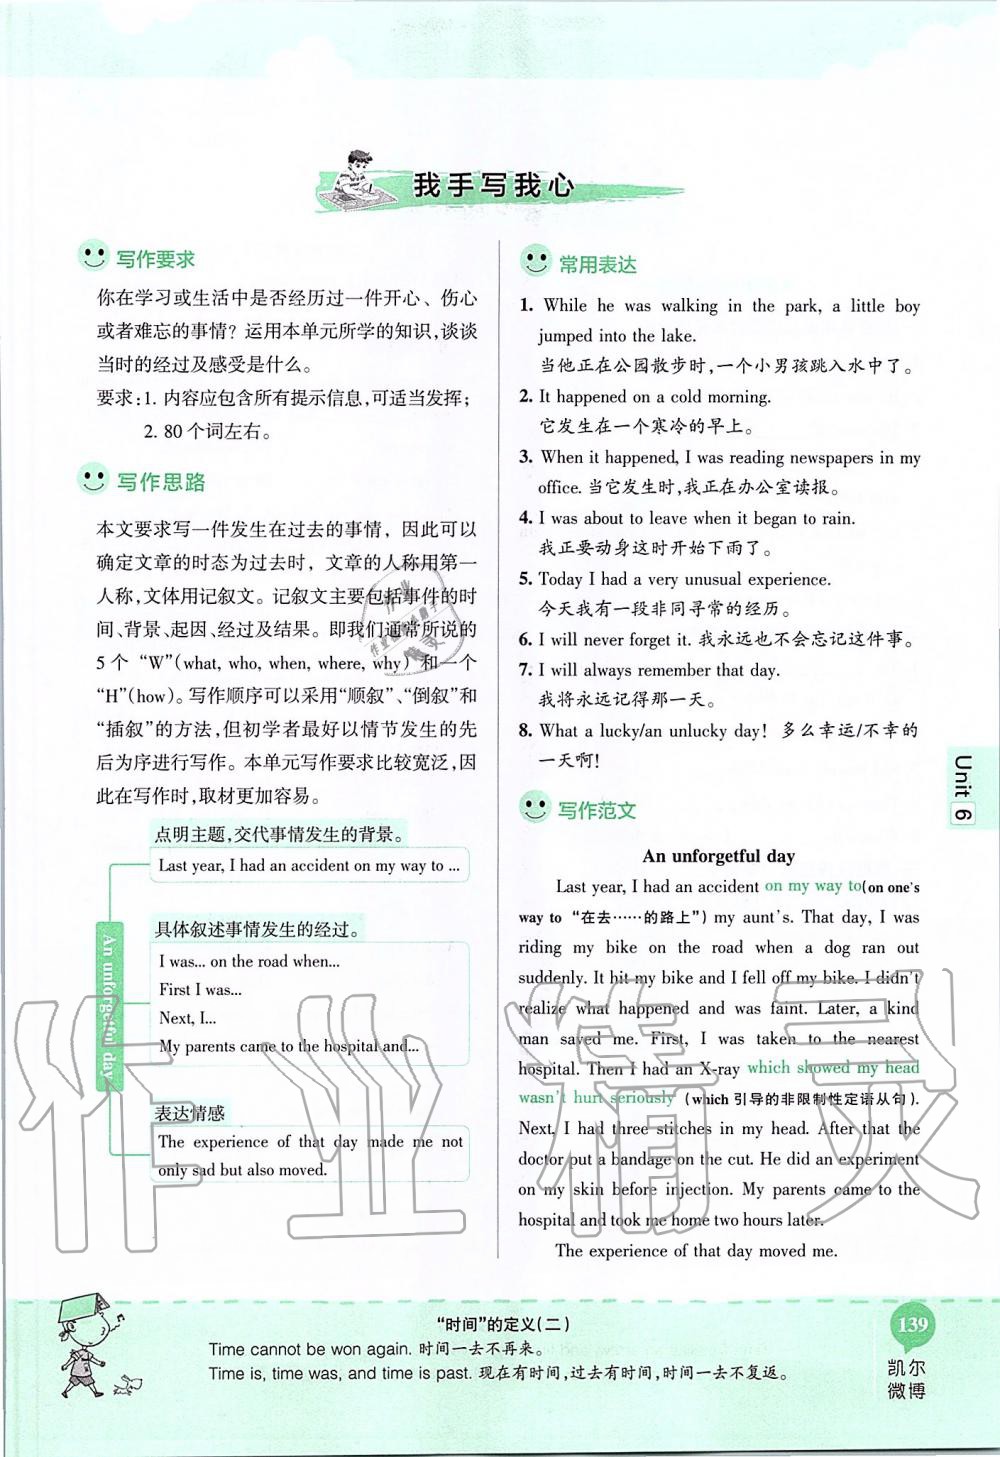 我手写我心
写作要求
你在学习或生活中是否经历过一件开心、伤心
或者难忘的事情？运用本单元所学的知识，谈谈
当时的经过及感受是什么。
要求：1. 内容应包含所有提示信息，可适当发挥；
2. 80 个词左右。
写作思路
本文要求写一件发生在过去的事情，因此可以
确定文章的时态为过去时，文章的人称用第一
人称，文体用记叙文。记叙文主要包括事件的时
间、背景、起因、经过及结果。即我们通常所说的
5 个 “W”(what, who, when, where, why) 和一个
“H”(how)。写作顺序可以采用“顺叙”、“倒叙”和
“插叙”的方法，但初学者最好以情节发生的先
后为序进行写作。本单元写作要求比较宽泛，因
此在写作时，取材更加容易。
An unforgetful day
点明主题，交代事情发生的背景。
Last year, I had an accident on my way to ...
具体叙述事情发生的经过。
I was... on the road when...
First I was...
Next, I...
My parents came to the hospital and...
表达情感
The experience of that day made me not
only sad but also moved.
常用表达
1. While he was walking in the park, a little boy
jumped into the lake.
当他正在公园散步时，一个小男孩跳入水中了。
2. It happened on a cold morning.
它发生在一个寒冷的早上。
3. When it happened, I was reading newspapers in my
office. 当它发生时，我正在办公室读报。
4. I was about to leave when it began to rain.
我正要动身这时开始下雨了。
5. Today I had a very unusual experience.
今天我有一段非同寻常的经历。
6. I will never forget it. 我永远也不会忘记这件事。
7. I will always remember that day.
我将永远记得那一天。
8. What a lucky/an unlucky day! 多么幸运/不幸的
一天啊！
写作范文
An unforgetful day
Last year, I had an accident on my way to(on one's
way to “在去……的路上”) my aunt's. That day, I was
riding my bike on the road when a dog ran out
suddenly. It hit my bike and I fell off my bike. I didn't
realize what happened and was faint. Later, a kind
man saved me. First, I was taken to the nearest
hospital. Then I had an X-ray which showed my head
wasn't hurt seriously (which 引导的非限制性定语从句).
Next, I had three stitches in my head. After that the
doctor put a bandage on the cut. He did an experiment
on my skin before injection. My parents came to the
hospital and took me home two hours later.
The experience of that day moved me.
Unit 6
“时间”的定义(二)
Time cannot be won again. 时间一去不再来。
Time is, time was, and time is past. 现在有时间，过去有时间，时间一去不复返。
139
凯尔
微博
作业精灵